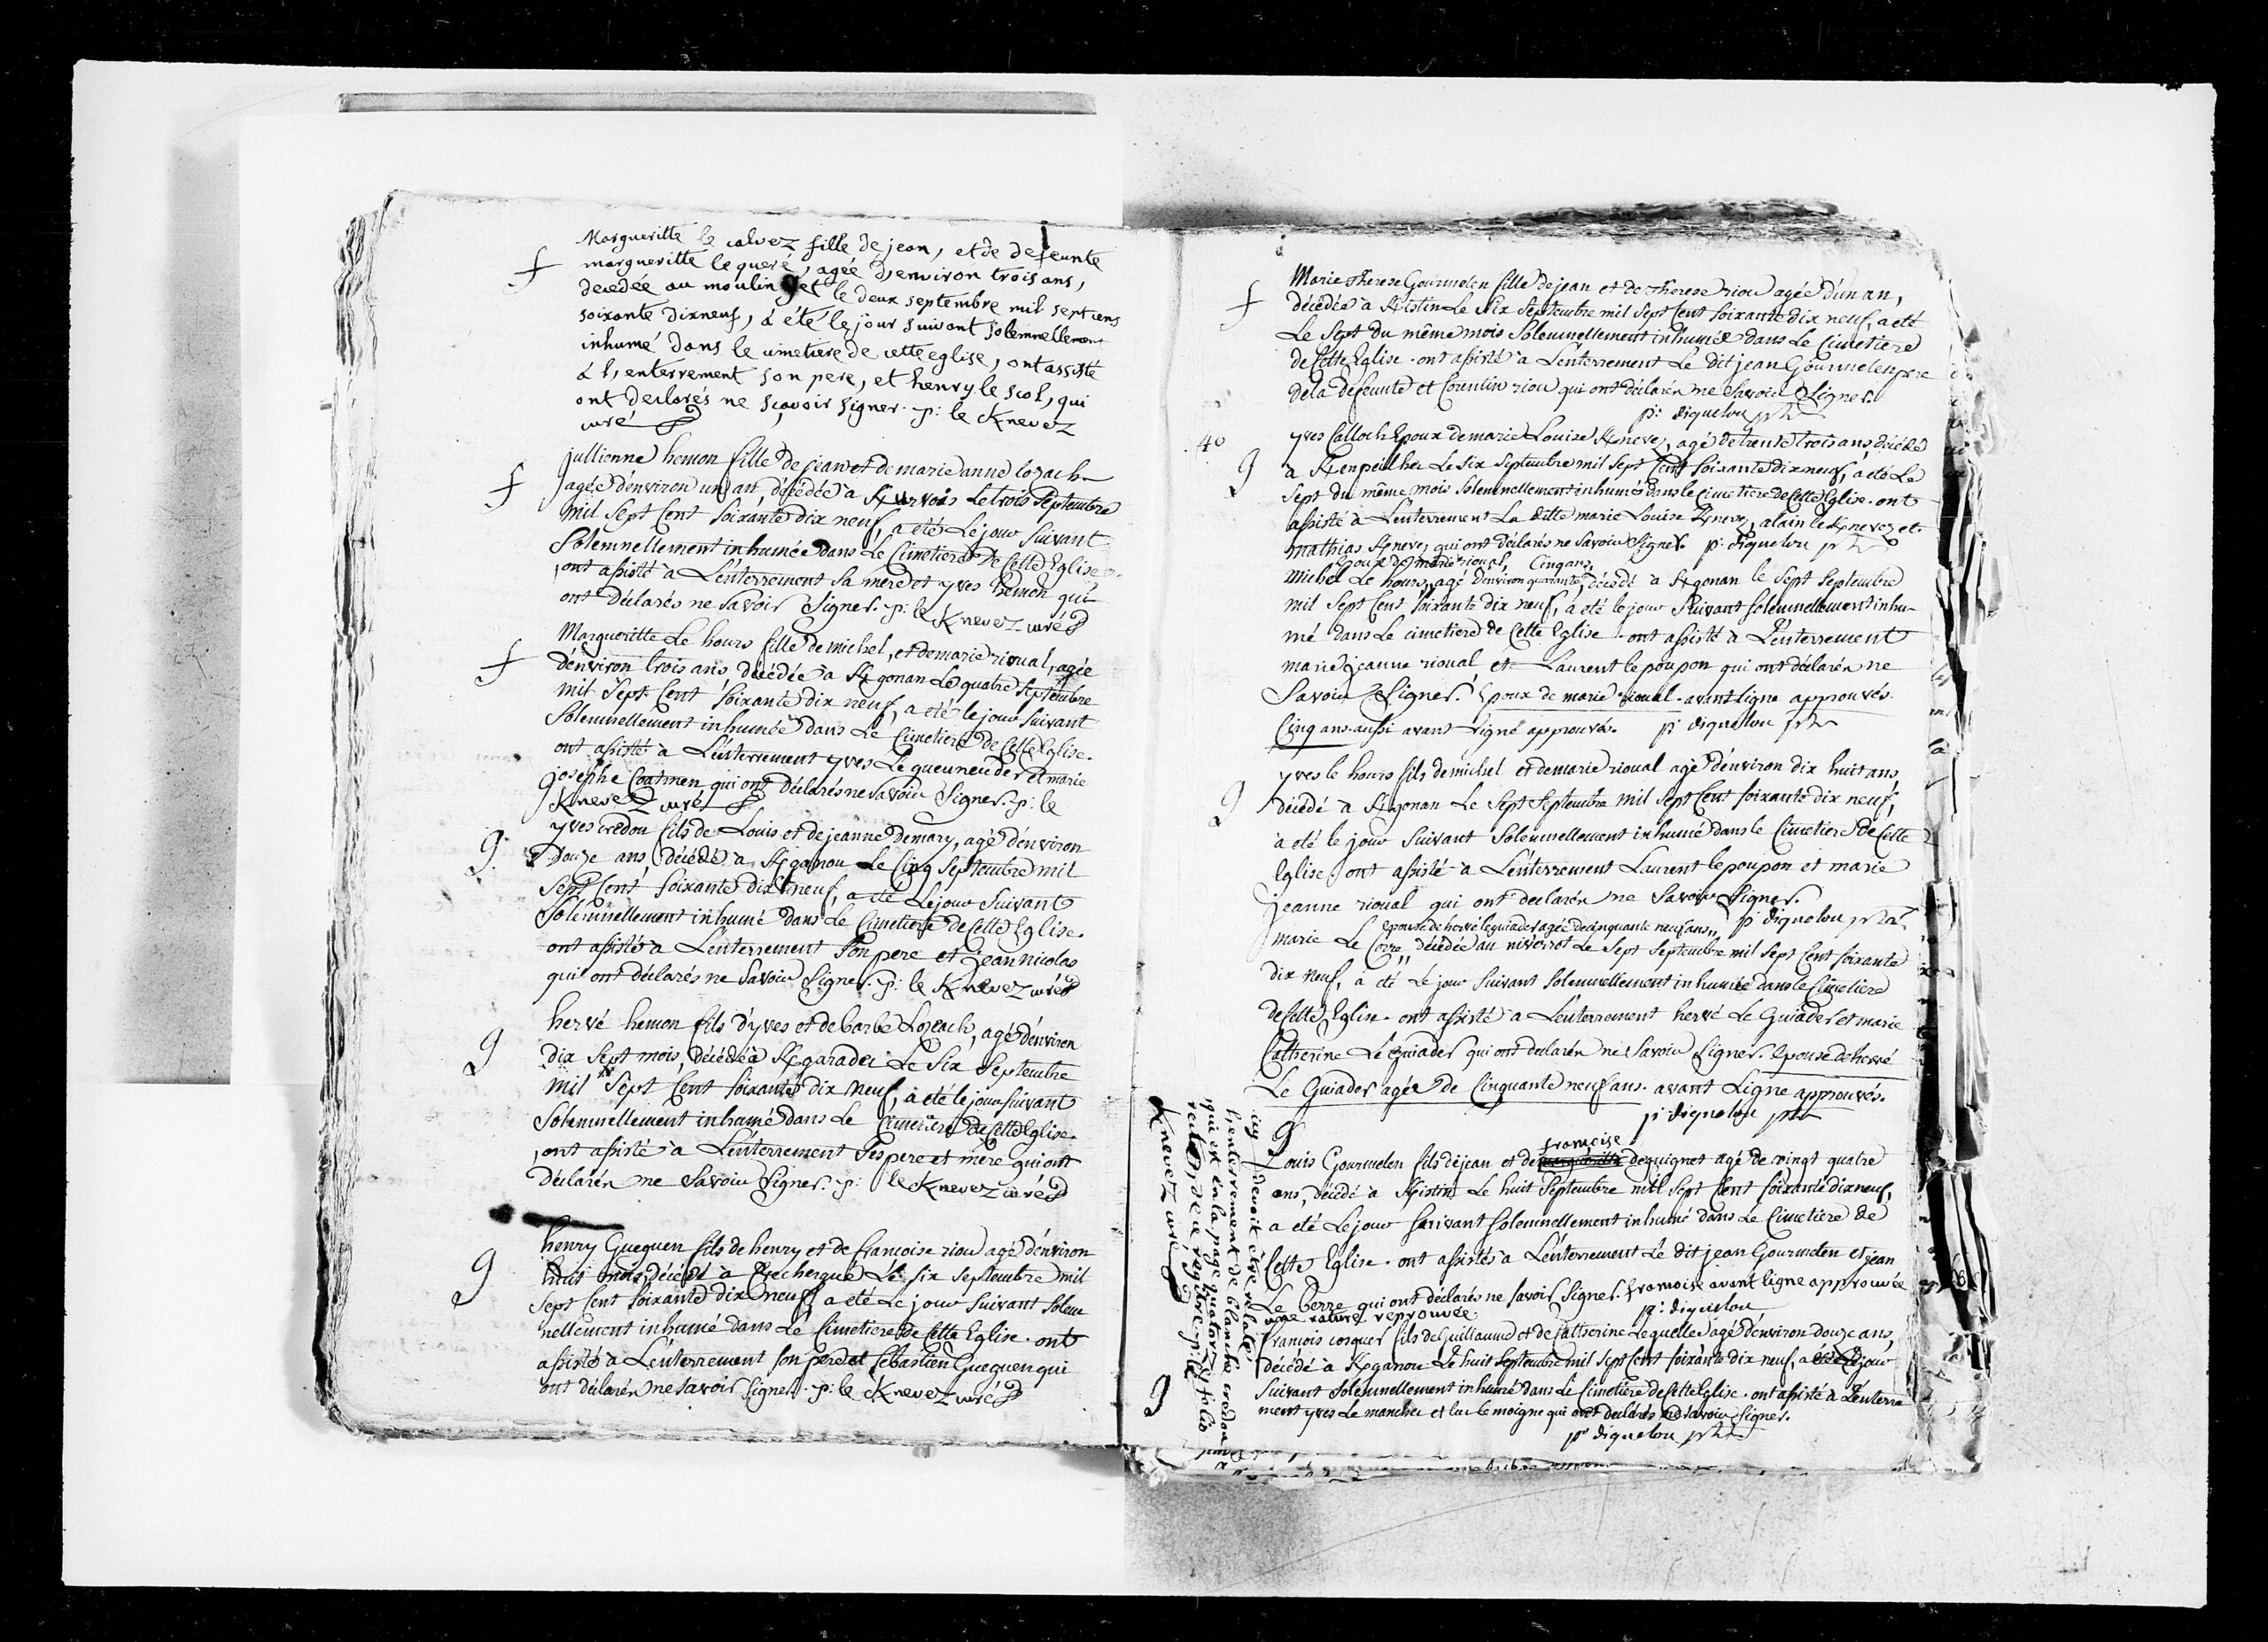 f
Margueritte le calvez fille de jean, et de defeunte
margueritte le queré, agée d'environ trois ans,
decedée au moulin get le deux septembre mil sept cens
soixante dixneuf, á été le jour suivant solemnellement
inhumé dans le cimetiere de cette eglise, ont assisté
á l'enterrement son pere, et henry le scol, qui
ont declarés ne sçavoir signer. p: le Knevez
curé
f
jullienne hemon fille de jean et de marie anne lozach
agée d'environ un an, décédée à Kurvois le trois Septembre
mil Sept Cent Soixante dix neuf, a eté Le jour Suivant
Solemnellement inhumée dans Le Cimetiere de Cette Eglise
, ont assisté à L'enterrement Sa mere et yves hemon qui
ont Declarés ne Savoir Signer. p: le Knevez curé
f
Margueritte Le hours fille de michel, et de marie rioual, agée
d'environ trois ans, décédée à Kgonan Le quatre Septembre
mil Sept Cent Soixante dix neuf, a eté le jour Suivant
Solemnellement inhumée dans Le Cimetiere de Cette Eglise.
ont assisté à L'enterrement yves Le gueuneuder et marie
josephe Coatmen qui ont Déclarés ne Savoir Signer. p: le
Knevez curé
g
yves credou fils de Louis et de jeanne Demary, agé d'environ
Douze ans, décédé à Kganou Le Cinq Septembre mil
Sept Cent Soixante dix neuf, a eté Le jour Suivant
Solemnellement inhumé dans Le Cimetiere de Cette Eglise.
ont assisté à L'enterrement Son pere et jean nicolas
qui ont déclarés ne Savoir Signer. p: le Knevez curé
g
hervé hemon fils d'yves et de barbe Lozach, agé d'environ
dix Sept mois, décédé à Kgaradec Le Six Septembre
mil Sept Cent Soixante dix neuf, à été le jour Suivant
Solemnellement inhumé dans Le Cimetiere de Cette Eglise.
, ont assisté à L'enterrement Ses pere et mere qui ont
Déclarés ne Savoir Signer. p: le Knevez curé
g
henry Gueguen fils de henry et de françoise riou agé d'environ
huit mois, décédé à Crechergué Le six septembre mil
Sept Cent Soixante dix neuf, a eté Le jour Suivant Solem
nellement inhumé dans Le Cimetiere de Cette Eglise. ont
assisté à L'enterrement son pere et Sebastien Gueguen qui
ont déclarés ne Savoir Signer. p: le Knevez curé
f
Marie Therese Gourmelen fille de jean et de Therese riou agée d'un an,
décédée à Kistin Le Six Septembre mil Sept Cent Soixante dix neuf, a eté
Le Sept du même mois Solemnellement inhumée dans Le Cimetiere
de Cette Eglise. ont assisté à L'enterrement Le dit jean Gourmelen pere
de la defeunte et Corentin riou qui ont déclarés ne Savoir Signer.
pr diquelou
40
g
yves Calloch Epoux de marie Louise Knevez, agé de trente trois ans, décédé
à Kenpeilher Le Six Septembre mil Sept Cent Soixante dix neuf, a eté Le
Sept du même mois Solemnellement inhumé dans le Cimetiere de Cette Eglise. ont
assisté à L'enterrement La ditte marie Louise Knevez, alain le Knevez et
mathias Knevez qui ont déclarés ne Savoir Signer. pr diquelou
Epoux de marie rioual, Cinq ans,
Michel Le hours, agé d'environ quarante, décédé à Kgonan le Sept Septembre
mil Sept Cent Soixante dix neuf, a eté le jour Suivant Solemnellement inhu-
mé dans Le cimetiere de Cette Eglise. ont assisté à L'enterrement
marie jeanne rioual et Laurent le poupon qui ont déclarés ne
Savoir Signer. Epoux de marie rioual. avant ligne approuvés.
Cinq ans. aussi avant Ligne approuvés. pr diquelou
g
yves le hours fils de michel et de marie rioual agé d'environ dix huit ans,
décédé à Kgonan Le Sept Septembre mil Sept Cent Soixante dix neuf,
à eté le jour Suivant Solemnellement inhumé dans le Cimetiere de Cette
Eglise ont assisté à L'enterrement Laurent le poupon et marie
jeanne rioual qui ont declarés ne Savoir Signer.
epouse de hervé le guiader agée de cinquante neuf ans,, pr diquelou
marie Le Corre,, décédée au niverrot Le Sept Septembre mil Sept Cent Soixante
dix neuf, à eté Le jour Suivant Solemnellement inhumée dans le Cimetiere
de Cette Eglise. ont assisté à L'enterrement hervé Le Guiader et marie
Catherine Le guiader qui ont declarés ne Savoir Signer. Epouse de hervé
Le Guiader agée de Cinquante neuf ans. avant Ligne approuvés.
pr diquelou
g
françoise
Louis Gourmelen fils de jean et de margueritte deguignet agé de vingt quatre
ans, décédé à Kistin Le huit Septembre mil Sept Cent Soixante dix neuf,
a eté Le jour Suivant Solemnellement inhumé dans Le Cimetiere de
Cette Eglise. ont assistés à L'enterrement Le dit jean Gourmelen et jean
Le berre qui ont déclarés ne Savoir Signer. françoise avant ligne approuvée
une rature reprouvée. pr. diquelou
g
françois cosquer fils de Guillaume et de Catherine Le quelle agé d'environ douze ans,
décédé à Kganou Le huit Septembre mil Sept Cent Soixante dix neuf, a été Le jour
Suivant Solemnellement inhumé dans Le Cimetiere de Cette Eglise. ont assisté à L'enterre
ment yves Le manchec et luc le moigne qui ont declarés ne Savoir Signer.
pr diquelou
icy devoit être relaté
l'enterrement de blanche credou
qui est en la page quatorze folio
recto de ce registre. p: le
Knevez curé